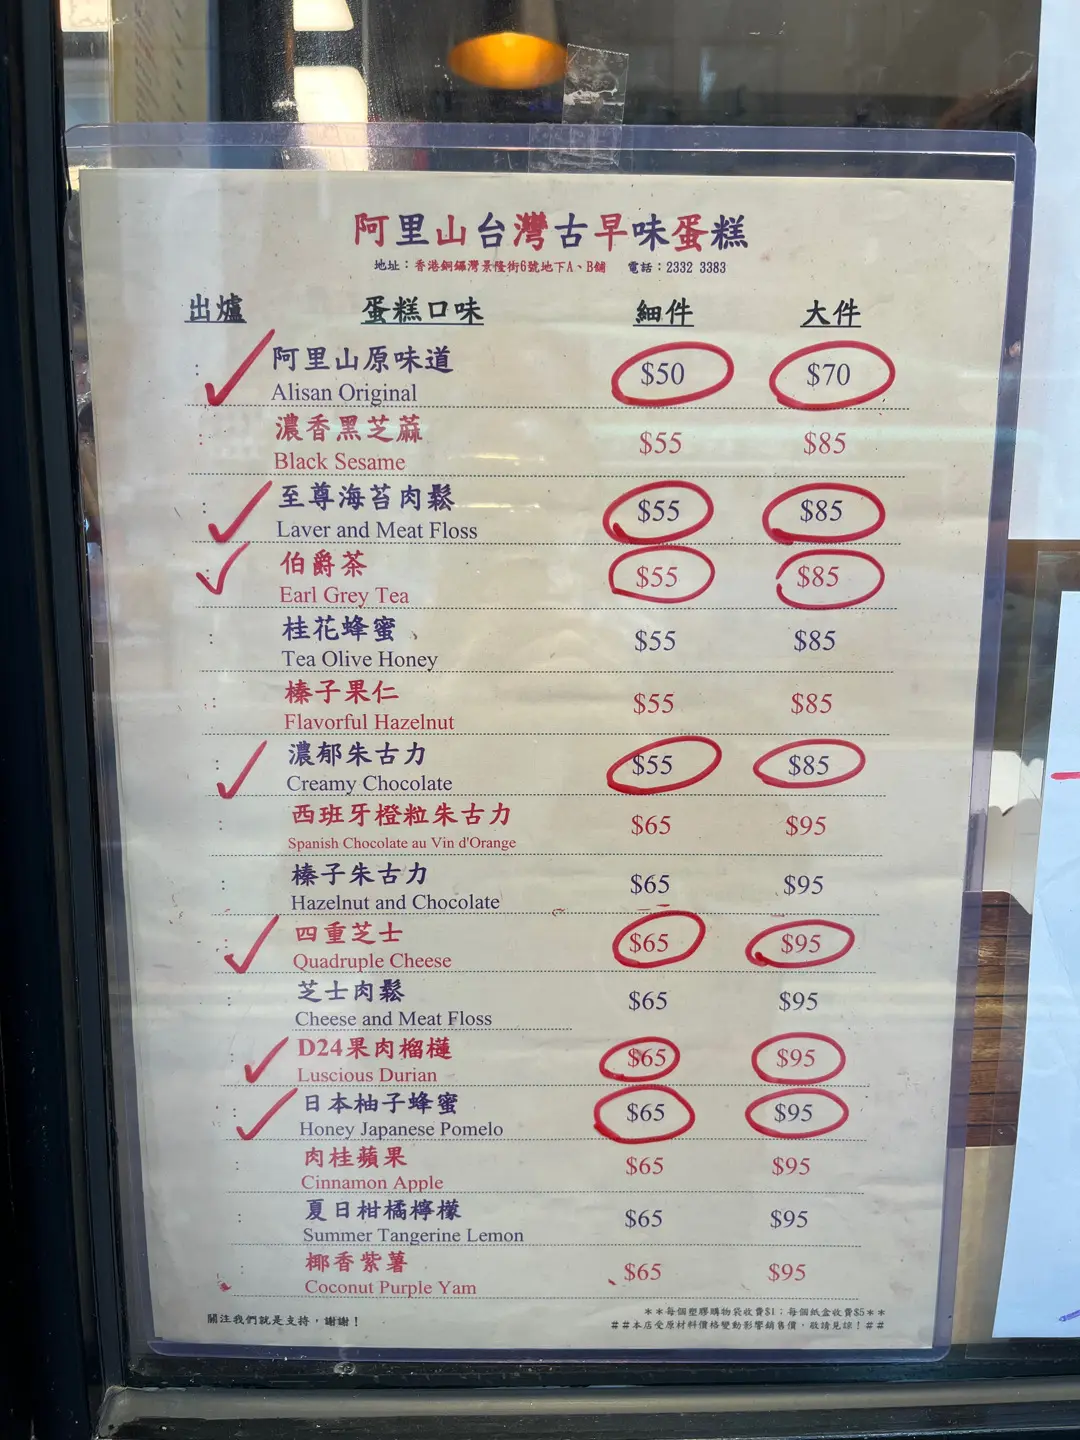 阿里山台灣古早味蛋糕
地址：香港銅鑼灣景隆街6號地下A、B舖 電話：2332 3383
出爐 蛋糕口味 細件 大件
: 阿里山原味道 $50 $70
Alisan Original
: 濃香黑芝蔴 $55 $85
Black Sesame
: 至尊海苔肉鬆 $55 $85
Laver and Meat Floss
: 伯爵茶 $55 $85
Earl Grey Tea
: 桂花蜂蜜 $55 $85
Tea Olive Honey
: 榛子果仁 $55 $85
Flavorful Hazelnut
: 濃郁朱古力 $55 $85
Creamy Chocolate
: 西班牙橙粒朱古力 $65 $95
Spanish Chocolate au Vin d'Orange
: 榛子朱古力 $65 $95
Hazelnut and Chocolate
: 四重芝士 $65 $95
Quadruple Cheese
: 芝士肉鬆 $65 $95
Cheese and Meat Floss
: D24果肉榴槤 $65 $95
Luscious Durian
: 日本柚子蜂蜜 $65 $95
Honey Japanese Pomelo
: 肉桂蘋果 $65 $95
Cinnamon Apple
: 夏日柑橘檸檬 $65 $95
Summer Tangerine Lemon
: 椰香紫薯 $65 $95
Coconut Purple Yam
關注我們就是支持，謝謝！
**每個塑膠購物袋收費$1；每個紙盒收費$5**
##本店受原材料價格變動影響銷售價，敬請見諒！##